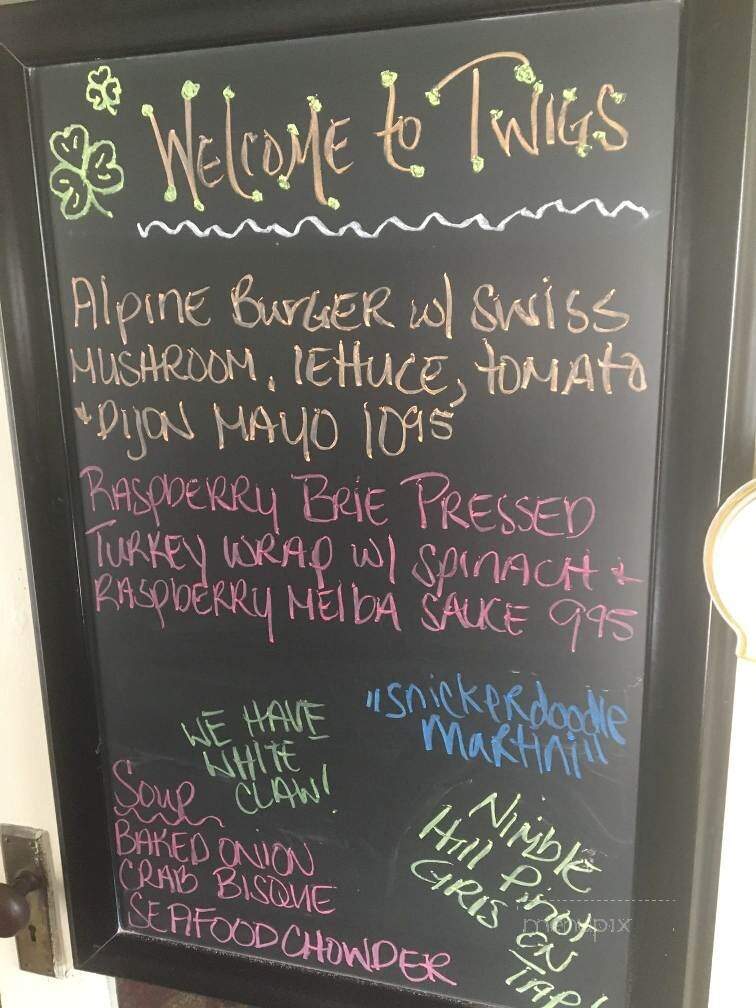 Welcome to Twigs
Alpine Burger w/ Swiss
Mushroom, Lettuce, Tomato
+ Dijon Mayo 1095
Raspberry Brie Pressed
Turkey Wrap w/ Spinach +
Raspberry Melba Sauce 995
"Snickerdoodle
Martini"
We Have
White
Claw!
Soup
Baked Onion
Crab Bisque
Seafood Chowder
Nimble
Hill Pinot
Gris on
Tap!
menupix